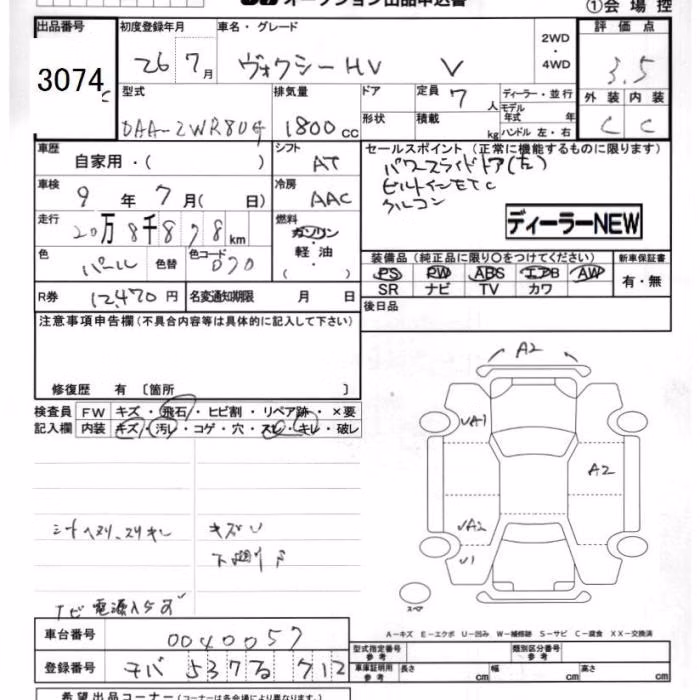 オークション出品申込書
①会場控
出品番号 初度登録年月 車名・グレード 2WD ・ 4WD 評価点
3074 26 7月 ヴォクシーHV V 3.5
型式 排気量 ドア 定員 7人 ディーラー・並行 外装 内装
モデル年式 年
DAA-ZWR80G 1800cc 形状 積載 kg ハンドル 左・右 C C
車歴 自家用・( ) シフト AT セールスポイント (正常に機能するものに限ります)
パワースライドドア(左)
車検 9年 7月( 日) 冷房 AAC ビルトインETC
クルコン
走行 20万8千878km 燃料 ガソリン ディーラーNEW
軽油
( )
色 パール 色替 色コード 070 装備品 (純正品に限り○をつけてください) 新車保証書
PS PW ABS エアB AW 有・無
R券 12,470円 名変通知期限 月 日 SR ナビ TV カワ
後日品
注意事項申告欄 (不具合内容等は具体的に記入して下さい)
修復歴 有 〔箇所 〕
A2
検査員 FW キズ・飛石・ヒビ割・リペア跡・×要
記入欄 内装 キズ・汚レ・コゲ・穴・スレ・キレ・破レ
A2
シートヘタリ、スリキレ キズU
下廻りS
ナビ電源入らず
スペア
A-キズ E-エクボ U-凹み W-補修跡 S-サビ C-腐食 XX-交換済
車台番号 0040057
型式指定番号 参考 類別区分番号 参考
登録番号 チバ 537 712
車庫証明用 参考 長さ cm 幅 cm 高さ cm
希望出品コーナー (コーナーは各会場により異なります。)